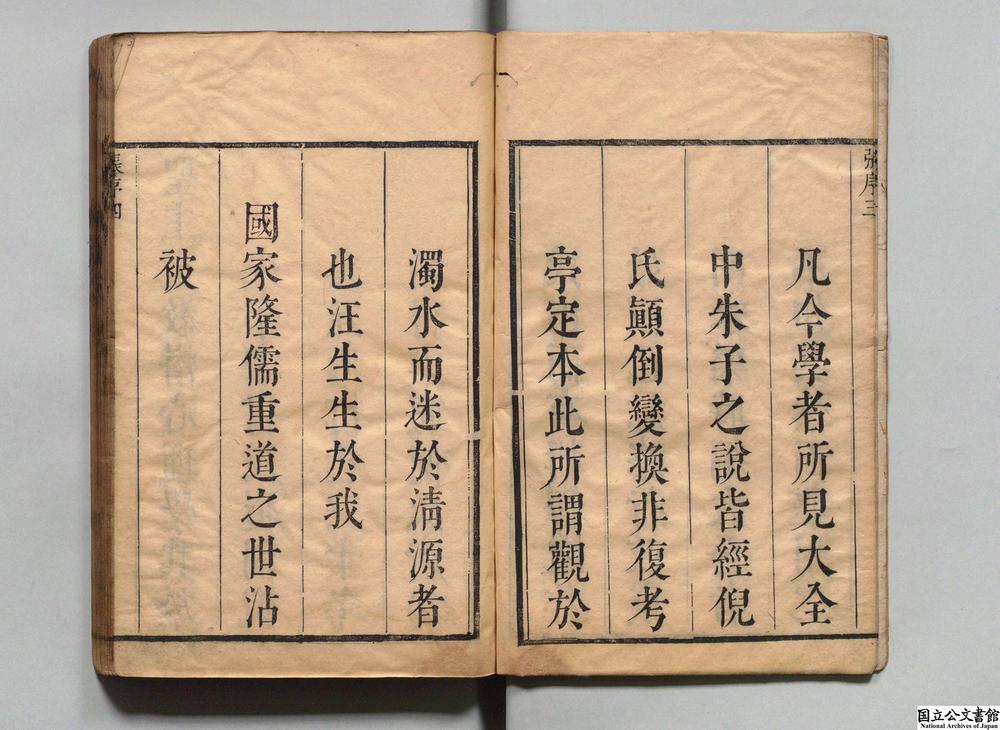 張序三
凡今學者所見大全
中朱子之說皆經倪
氏顚倒變換非復考
亭定本此所謂觀於
濁水而迷於淸源者
也汪生生於我
國家隆儒重道之世沾
被
張序四
国立公文書館
National Archives of Japan